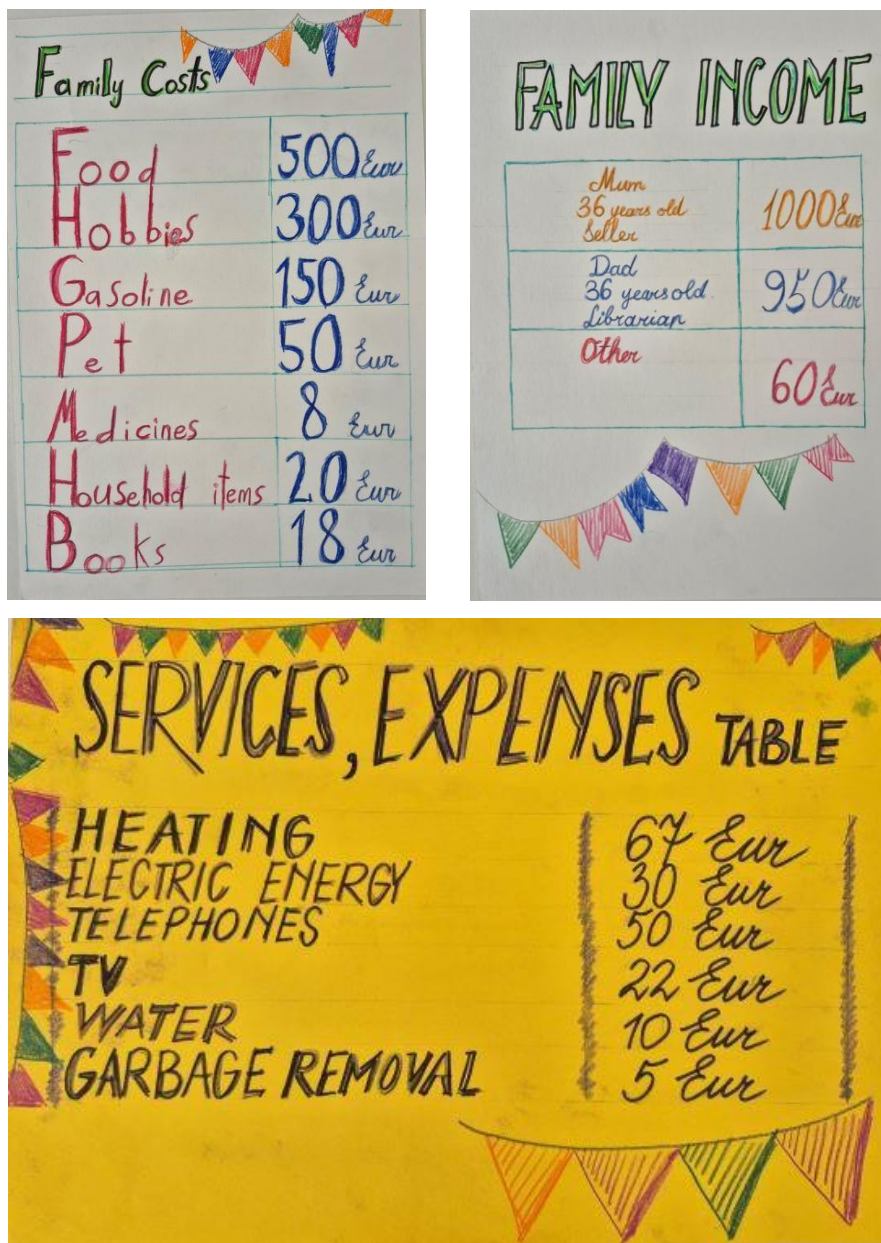 Family Costs
Food 500 Eur
Hobbies 300 Eur
Gasoline 150 Eur
Pet 50 Eur
Medicines 8 Eur
Household items 20 Eur
Books 18 Eur
FAMILY INCOME
Mum
36 years old
Seller
1000 Eur
Dad
36 years old.
Librarian
950 Eur
Other
60 Eur
SERVICES, EXPENSES TABLE
HEATING 67 Eur
ELECTRIC ENERGY 30 Eur
TELEPHONES 50 Eur
TV 22 Eur
WATER 10 Eur
GARBAGE REMOVAL 5 Eur